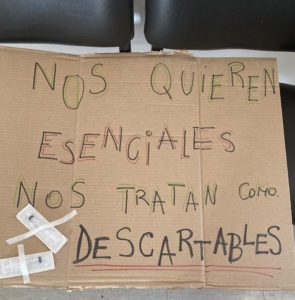 NOS QUIEREN
ESENCiALES
NOS TRATAN COMO
DESCARTABLES